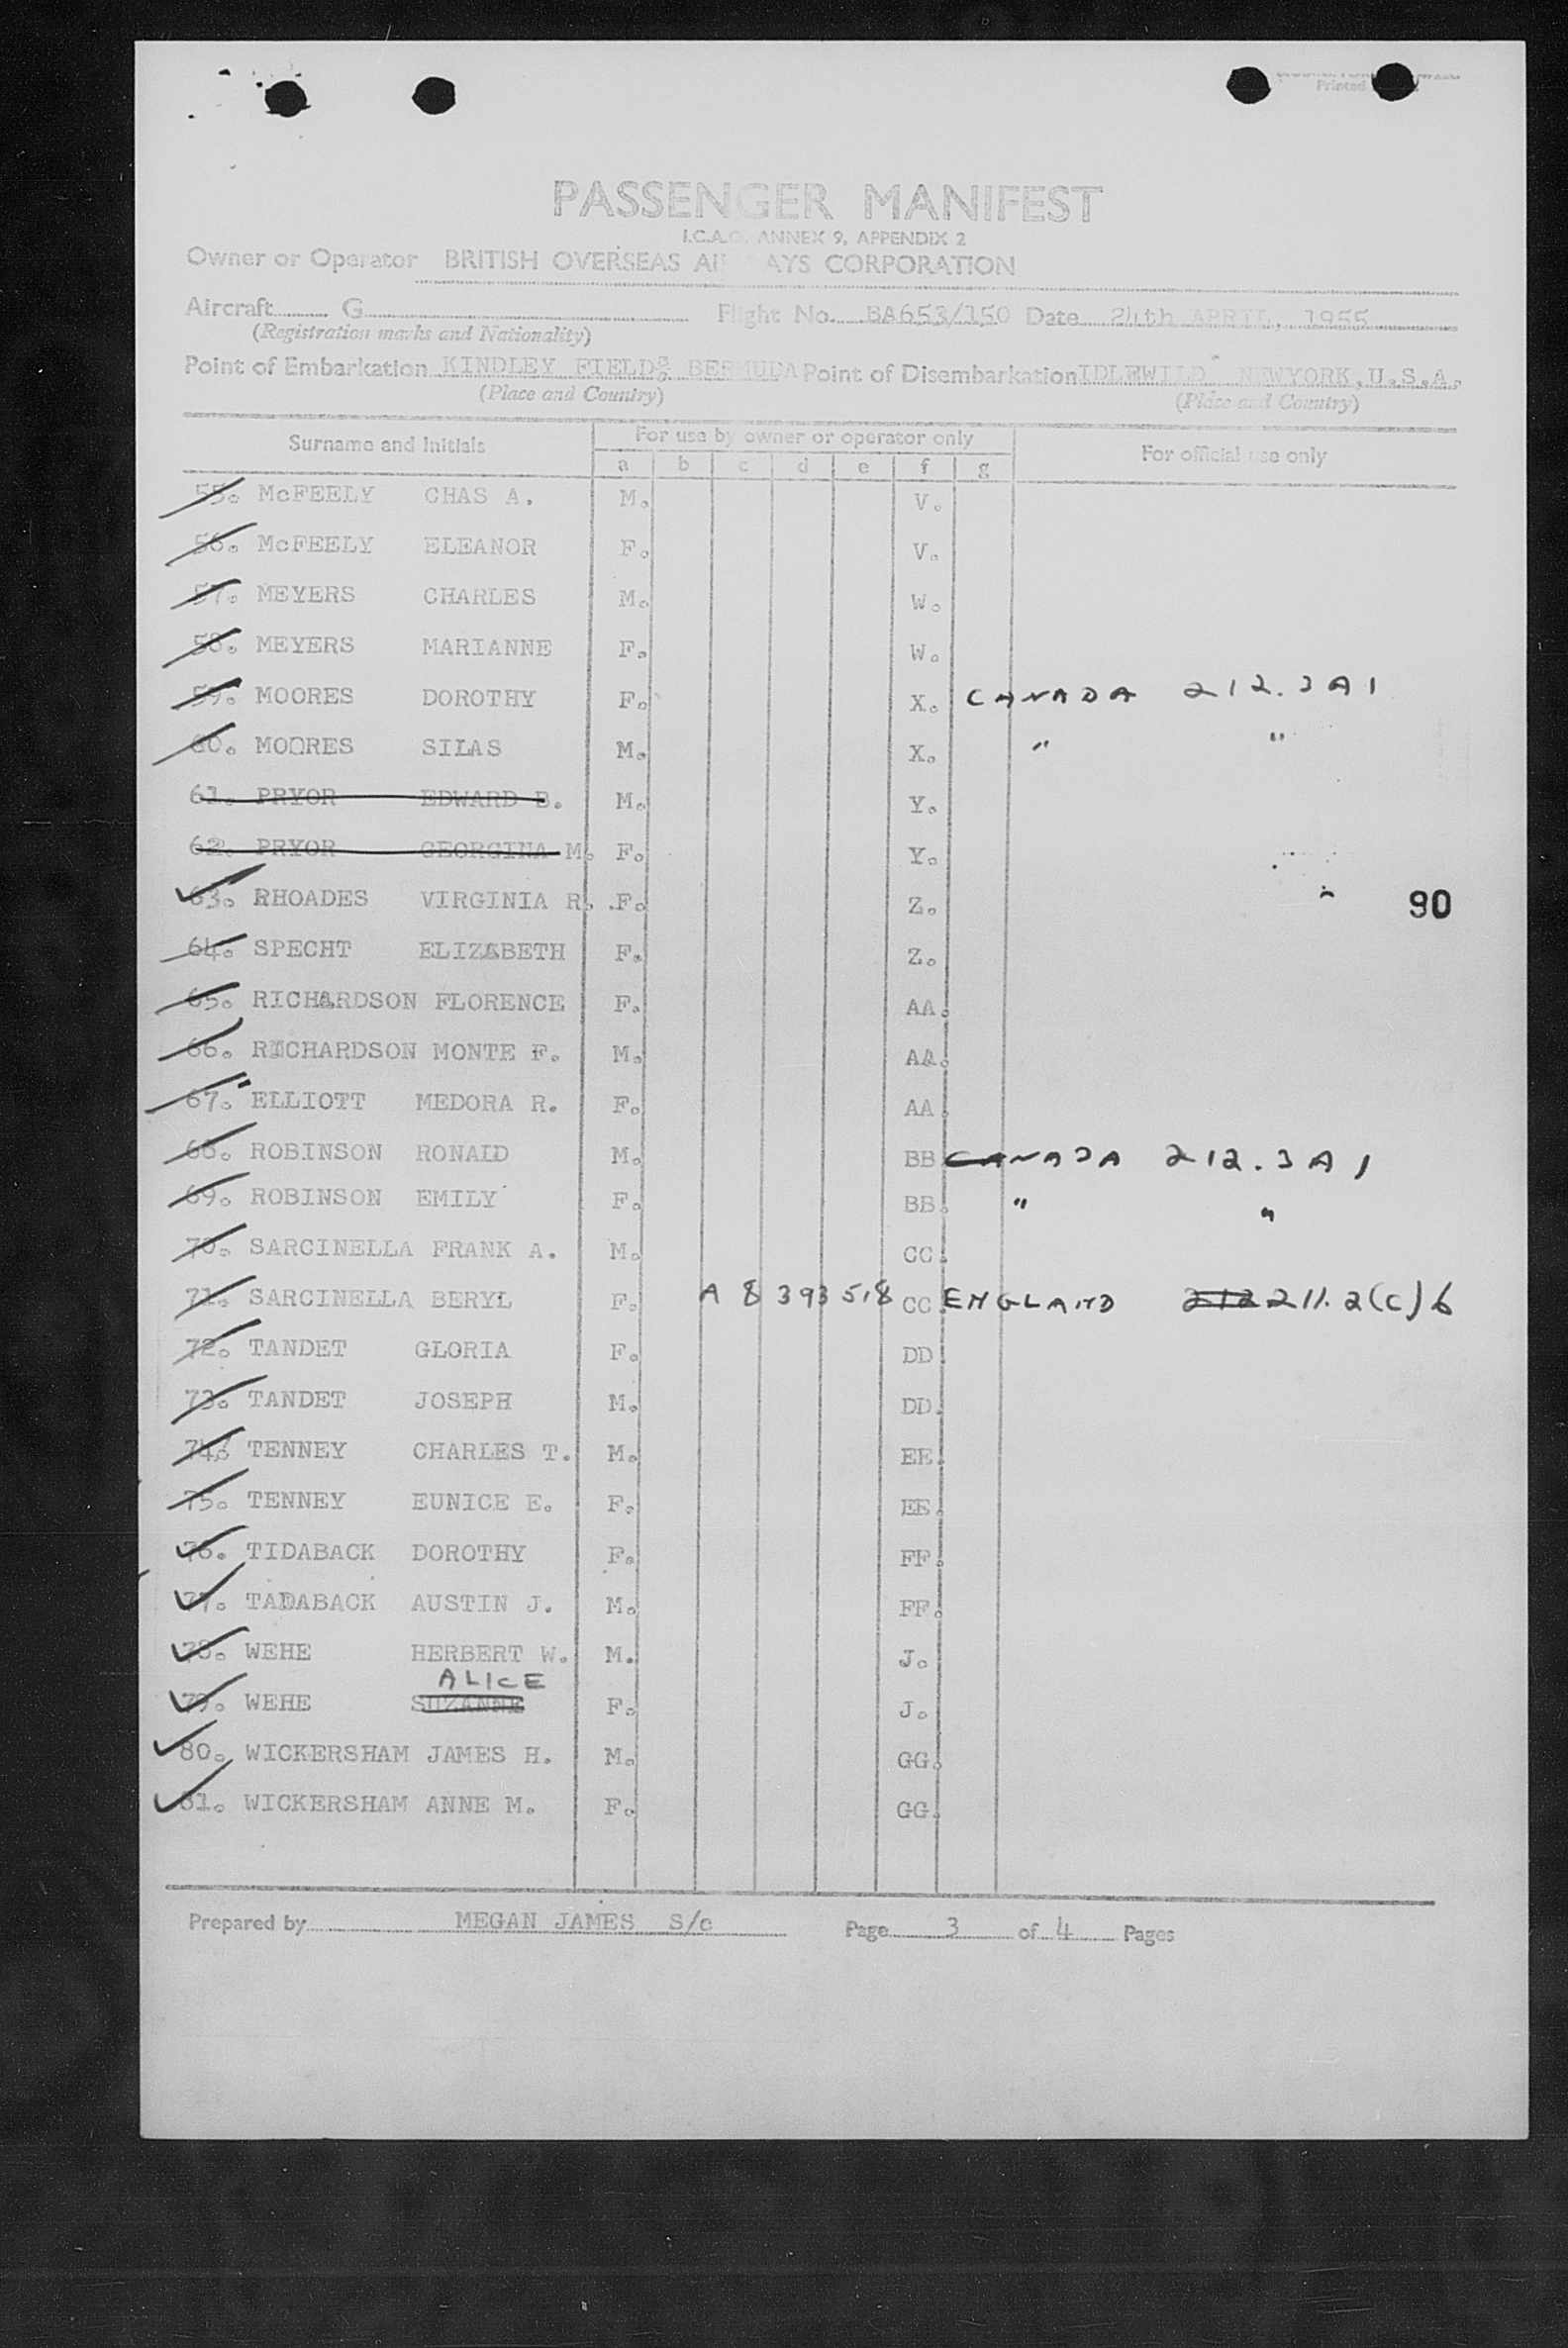 Printed
PASSENGER MANIFEST
I.C.A.O. ANNEX 9, APPENDIX 2
Owner or Operator BRITISH OVERSEAS AI AYS CORPORATION
Aircraft G Flight No. BA653/150 Date 24th APRIL, 1955
(Registration marks and Nationality)
Point of Embarkation KINDLEY FIELD, BERMUDA Point of Disembarkation IDLEWILD NEWYORK, U.S.A.
(Place and Country) (Place and Country)
Surname and Initials For use by owner or operator only For official use only
a b c d e f g
55. McFEELY CHAS A. M. V.
56. McFEELY ELEANOR F. V.
57. MEYERS CHARLES M. W.
58. MEYERS MARIANNE F. W.
59. MOORES DOROTHY F. X. CANADA 212.3A1
60. MOORES SILAS M. X. " "
61. PRYOR EDWARD B. M. Y.
62. PRYOR GEORGINA M. F. Y.
63. RHOADES VIRGINIA R. F. Z. 90
64. SPECHT ELIZABETH F. Z.
65. RICHARDSON FLORENCE F. AA.
66. RICHARDSON MONTE F. M. AA.
67. ELLIOTT MEDORA R. F. AA.
68. ROBINSON RONALD M. BB. CANADA 212.3A1
69. ROBINSON EMILY F. BB. " "
70. SARCINELLA FRANK A. M. CC.
71. SARCINELLA BERYL F. A 8 393 518 CC. ENGLAND 212 211.2(C)6
72. TANDET GLORIA F. DD.
73. TANDET JOSEPH M. DD.
74. TENNEY CHARLES T. M. EE.
75. TENNEY EUNICE E. F. EE.
76. TIDABACK DOROTHY F. FF.
77. TADABACK AUSTIN J. M. FF.
78. WEHE HERBERT W. M. J.
ALICE
79. WEHE SUZANNE F. J.
80. WICKERSHAM JAMES H. M. GG.
81. WICKERSHAM ANNE M. F. GG.
Prepared by MEGAN JAMES S/c Page 3 of 4 Pages